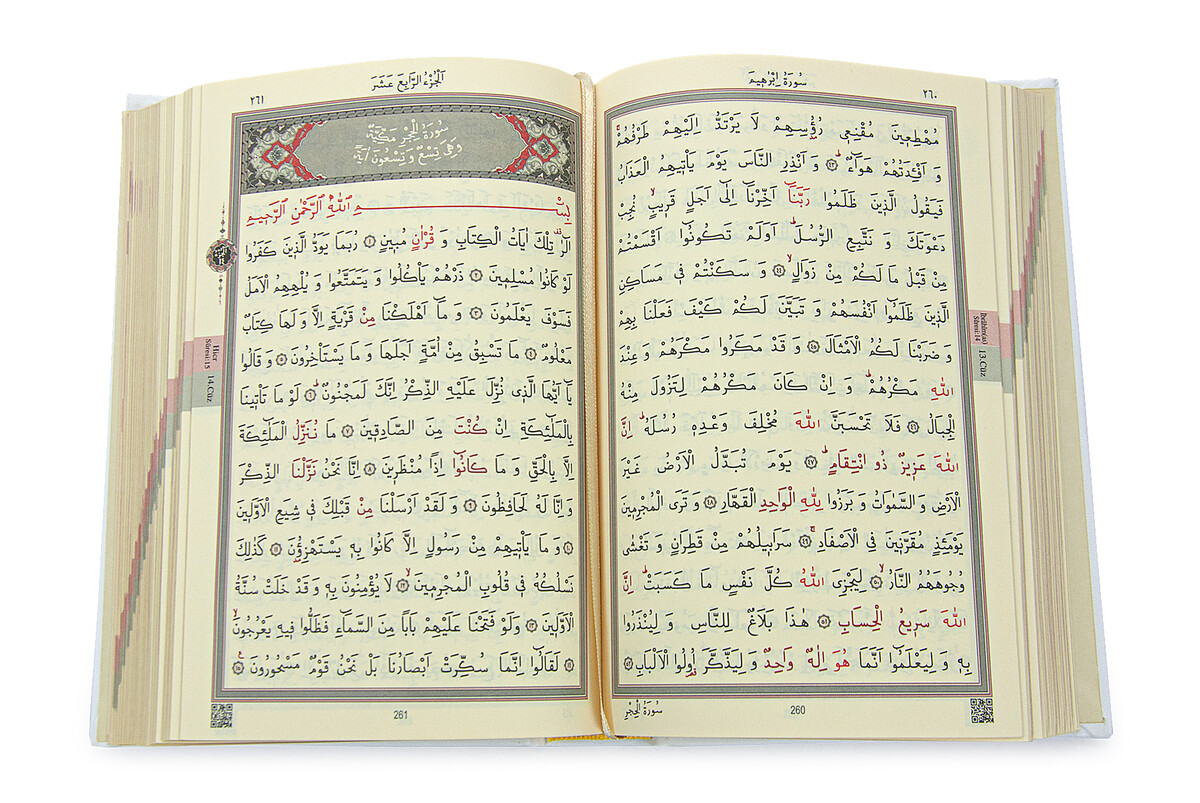 سُورَةُ اِبْرٰهِيمَ
٢٦٠
مُهْطِعِينَ مُقْنِعِى رُؤُسِهِمْ لَا يَرْتَدُّ اِلَيْهِمْ طَرْفُهُمْۚ
وَ اَفْـِٔدَتُهُمْ هَوَٓاءٌۜ ﴿٤٣﴾ وَ اَنْذِرِ النَّاسَ يَوْمَ يَأْتِيهِمُ الْعَذَابُ
فَيَقُولُ الَّذِينَ ظَلَمُوا رَبَّنَٓا اَخِّرْنَٓا اِلٰٓى اَجَلٍ قَرِيبٍۙ نُجِبْ
دَعْوَتَكَ وَ نَتَّبِعِ الرُّسُلَۜ اَوَلَمْ تَكُونُٓوا اَقْسَمْتُمْ
مِنْ قَبْلُ مَا لَكُمْ مِنْ زَوَالٍۙ ﴿٤٤﴾ وَ سَكَنْتُمْ فِى مَسَاكِنِ
الَّذِينَ ظَلَمُٓوا اَنْفُسَهُمْ وَ تَبَيَّنَ لَكُمْ كَيْفَ فَعَلْنَا بِهِمْ
وَ ضَرَبْنَا لَكُمُ الْاَمْثَالَ ﴿٤٥﴾ وَ قَدْ مَكَرُوا مَكْرَهُمْ وَ عِنْدَ
اللّٰهِ مَكْرُهُمْۜ وَ اِنْ كَانَ مَكْرُهُمْ لِتَزُولَ مِنْهُ
الْجِبَالُ ﴿٤٦﴾ فَلَا تَحْسَبَنَّ اللّٰهَ مُخْلِفَ وَعْدِهٖ رُسُلَهُۜ اِنَّ
اللّٰهَ عَزِيزٌ ذُو انْتِقَامٍۜ ﴿٤٧﴾ يَوْمَ تُبَدَّلُ الْاَرْضُ غَيْرَ
الْاَرْضِ وَ السَّمٰوَاتُ وَ بَرَزُوا لِلّٰهِ الْوَاحِدِ الْقَهَّارِ ﴿٤٨﴾ وَ تَرَى الْمُجْرِمِينَ
يَوْمَئِذٍ مُقَرَّنِينَ فِى الْاَصْفَادِۚ ﴿٤٩﴾ سَرَابِيلُهُمْ مِنْ قَطِرَانٍ وَ تَغْشٰى
وُجُوهَهُمُ النَّارُۙ ﴿٥٠﴾ لِيَجْزِىَ اللّٰهُ كُلَّ نَفْسٍ مَا كَسَبَتْۜ اِنَّ
اللّٰهَ سَرِيعُ الْحِسَابِ ﴿٥١﴾ هٰذَا بَلَاغٌ لِلنَّاسِ وَ لِيُنْذَرُوا
بِهٖ وَ لِيَعْلَمُٓوا اَنَّمَا هُوَ اِلٰهٌ وَاحِدٌ وَ لِيَذَّكَّرَ اُولُوا الْاَلْبَابِ ﴿٥٢﴾
İbrâhîm(as)
Sûresi:14
13.Cüz
سُورَةُ الْحِجْرِ
260
اَلْجُزْءُ الرَّابِعَ عَشَرَ
٢٦١
سُورَةُ الْحِجْرِ مَكِّيَّةٌ
وَهِىَ تِسْعٌ وَ تِسْعُونَ اٰيَةً
بِسْمِ اللّٰهِ الرَّحْمٰنِ الرَّحِيمِ
الٓرٰ۠ تِلْكَ اٰيَاتُ الْكِتَابِ وَ قُرْاٰنٍ مُبِينٍ ﴿١﴾ رُبَمَا يَوَدُّ الَّذِينَ كَفَرُوا
لَوْ كَانُوا مُسْلِمِينَ ﴿٢﴾ ذَرْهُمْ يَأْكُلُوا وَ يَتَمَتَّعُوا وَ يُلْهِهِمُ الْاَمَلُ
فَسَوْفَ يَعْلَمُونَ ﴿٣﴾ وَ مَٓا اَهْلَكْنَا مِنْ قَرْيَةٍ اِلَّا وَ لَهَا كِتَابٌ
مَعْلُومٌ ﴿٤﴾ مَا تَسْبِقُ مِنْ اُمَّةٍ اَجَلَهَا وَ مَا يَسْتَأْخِرُونَ ﴿٥﴾ وَ قَالُوا
يَٓا اَيُّهَا الَّذِى نُزِّلَ عَلَيْهِ الذِّكْرُ اِنَّكَ لَمَجْنُونٌۜ ﴿٦﴾ لَوْ مَا تَأْتِينَا
بِالْمَلٰٓئِكَةِ اِنْ كُنْتَ مِنَ الصَّادِقِينَ ﴿٧﴾ مَا نُنَزِّلُ الْمَلٰٓئِكَةَ
اِلَّا بِالْحَقِّ وَ مَا كَانُٓوا اِذًا مُنْظَرِينَ ﴿٨﴾ اِنَّا نَحْنُ نَزَّلْنَا الذِّكْرَ
وَ اِنَّا لَهُ لَحَافِظُونَ ﴿٩﴾ وَ لَقَدْ اَرْسَلْنَا مِنْ قَبْلِكَ فِى شِيَعِ الْاَوَّلِينَ
﴿١٠﴾ وَ مَا يَأْتِيهِمْ مِنْ رَسُولٍ اِلَّا كَانُوا بِهٖ يَسْتَهْزِؤُنَ ﴿١١﴾ كَذٰلِكَ
نَسْلُكُهُ فِى قُلُوبِ الْمُجْرِمِينَۙ ﴿١٢﴾ لَا يُؤْمِنُونَ بِهٖ وَ قَدْ خَلَتْ سُنَّةُ
الْاَوَّلِينَ ﴿١٣﴾ وَلَوْ فَتَحْنَا عَلَيْهِمْ بَابًا مِنَ السَّمَٓاءِ فَظَلُّوا فِيهِ يَعْرُجُونَۙ
﴿١٤﴾ لَقَالُٓوا اِنَّمَا سُكِّرَتْ اَبْصَارُنَا بَلْ نَحْنُ قَوْمٌ مَسْحُورُونَ۟ ﴿١٥﴾
Hicr
Sûresi:15
14.Cüz
261